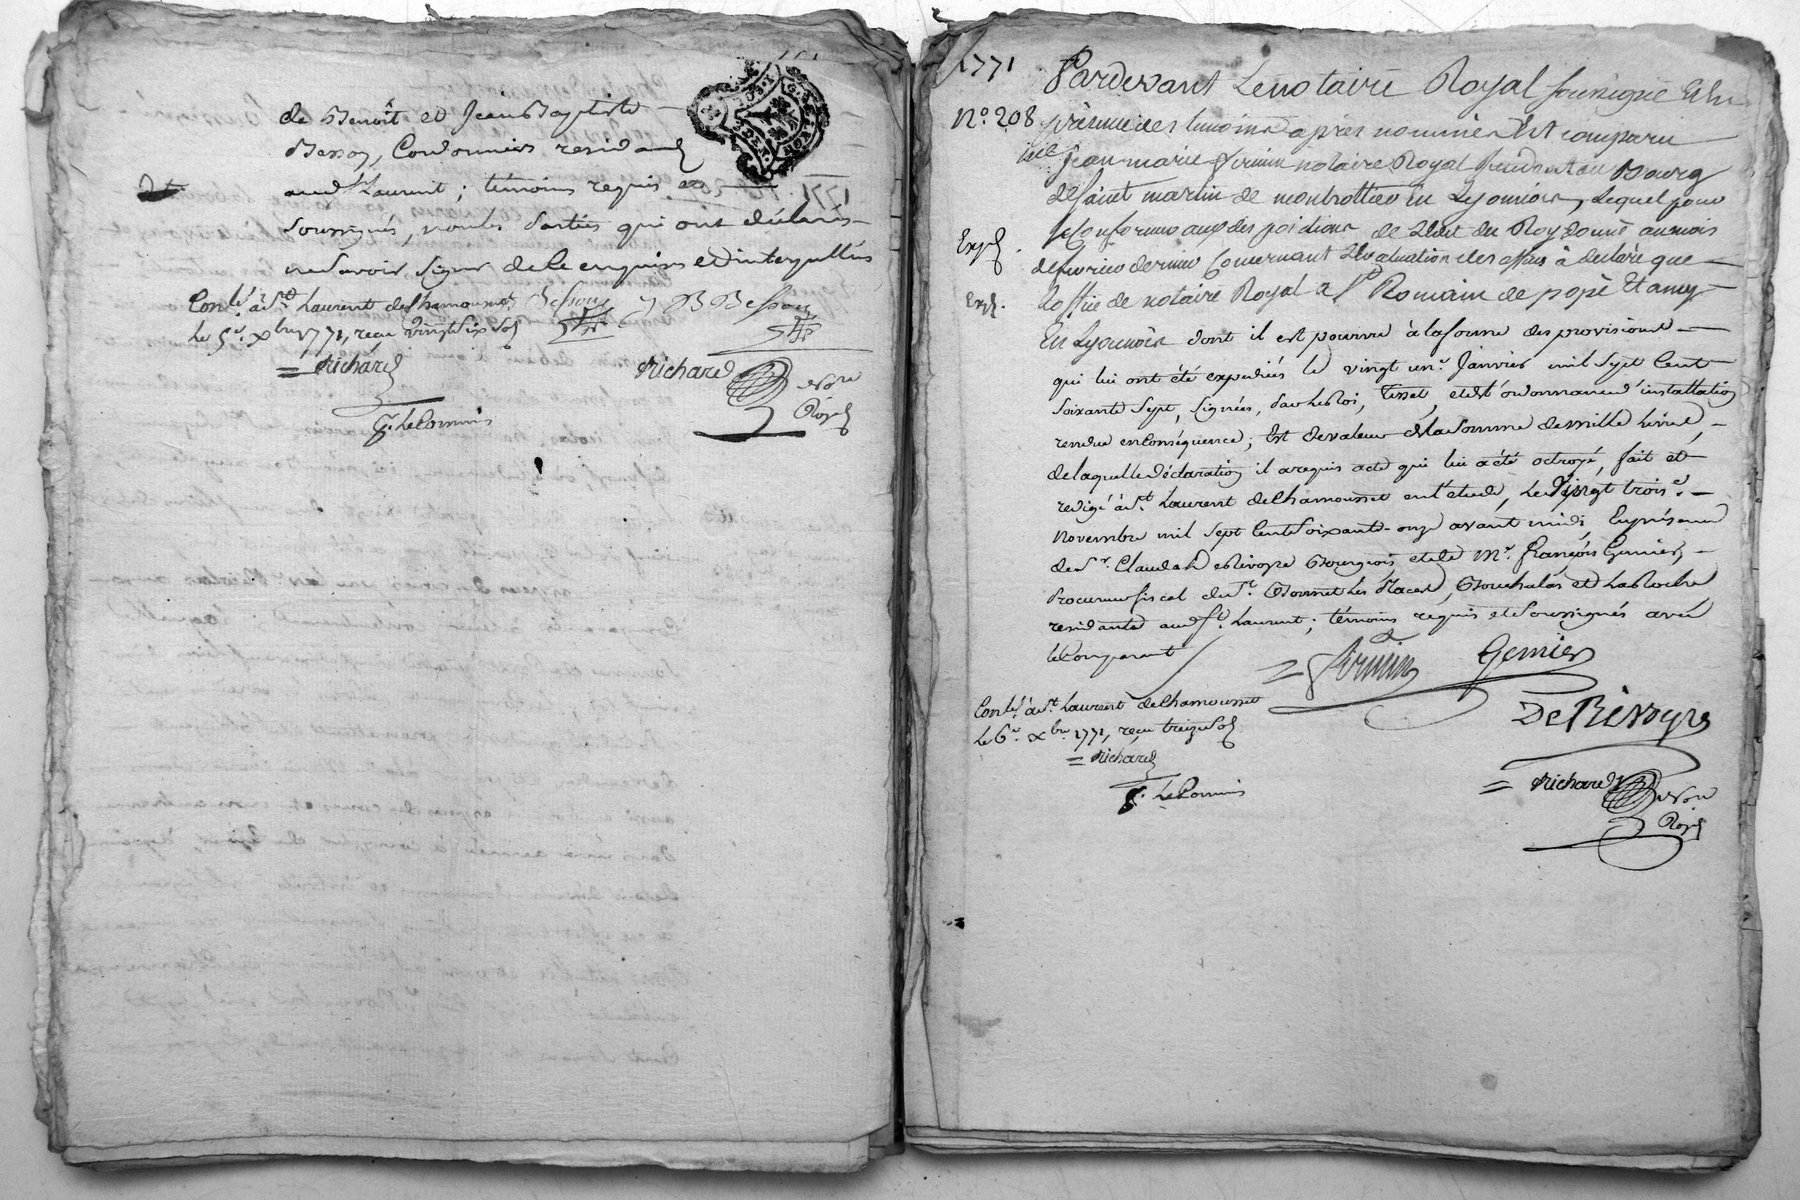 de Benoît et Jean Baptiste
Besson, Cordonniers residans
aud. St. Laurent; témoins requis et
soussignés, non les parties qui ont déclarés
ne savoir signer de ce enquises et interpellées
Conlé. à St. Laurent de Chamousset
le 5e. xbre 1771, reçu vingt six sols
Bessons J B Besson
Richard
p. le Commis
Richard
Nore
Royal
1771
Pardevant Le notaire Royal soussigné Et En
No. 208
présence des temoins après nommés Est comparu
Me jean marie notaire Royal Residant au Bourg
de saint martin de montrottier En Lyonnois, Lequel pour
se Conformer aux dispositions de L'Edit du Roy donné au mois
Expé
de fevrier dernier Concernant L'Evaluation des offices à declaré que
Expé.
L'office de notaire Royal a St. Romain de popé Et ancy
En Lyonnois dont il est pourvu à la forme des provisions
qui lui ont été expediées le vingt un. Janvier mil sept Cent
soixante sept, signées, par le Roi, et de l'ordonnance d'installation
rendue en conséquence; Est de valeur de la somme de mille Livres,
de laquelle déclaration il a requis acte qui lui a été octroyé, fait et
redigé à St. Laurent de Chamousset en l'etude, Le Vingt trois e.
Novembre mil sept Cent soixante-onze avant midi, En présence
de Sr. Claude De Rivoyre Bourgeois, et de Me. françois Gemier,
Procureur fiscal de
residants aud. St. Laurent; témoins requis et soussignés avec
le Comparant
Gemier
Conlé. à St. Laurent de Chamousset
le 6e. xbre 1771, reçu treize sols
De Rivoyre
Richard
p. le Commis
Richard
Nore
Royal